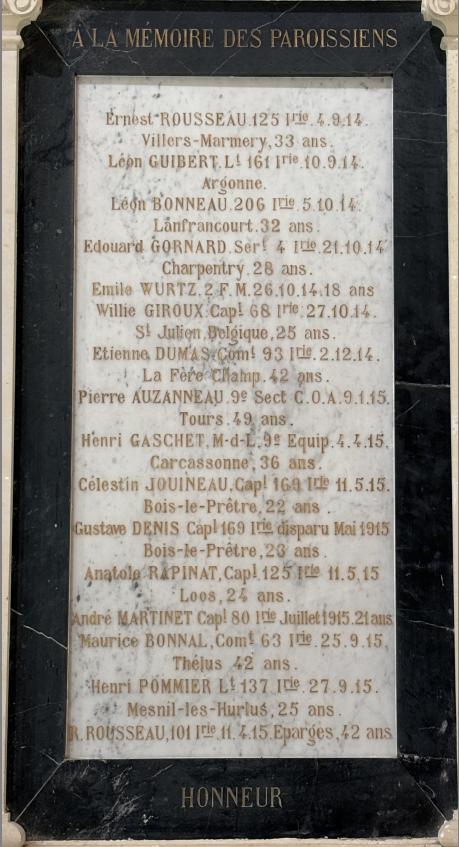 A LA MEMOIRE DES PAROISSIENS
Ernest ROUSSEAU.125 Irie.4.9.14.
Villers-Marmery, 33 ans.
Léon GUIBERT. Lt 161 Irie.10.9.14.
Argonne.
Léon BONNEAU.206 Irie 5.10.14.
Lanfrancourt.32 ans.
Edouard GORNARD.Sert 4 Irie.21.10.14
Charpentry.28 ans.
Emile WURTZ.2 F.M.26.10.14.18 ans
Willie GIROUX.Capl 68 Irie.27.10.14.
St Julien Belgique, 25 ans.
Etienne DUMAS.Comt 93 Irie.2.12.14.
La Fère Champ.42 ans.
Pierre AUZANNEAU.9e Sect C.O.A.9.1.15.
Tours.49 ans.
Henri GASCHET.M-d-L.9e Equip.4.4.15.
Carcassonne, 36 ans.
Célestin JOUINEAU.Capl 169 Irie 11.5.15.
Bois-le-Prêtre, 22 ans.
Gustave DENIS Capl 169 Irie disparu Mai 1915
Bois-le-Prêtre, 23 ans.
Anatole RAPINAT, Capl.125 Irie 11.5.15
Loos, 24 ans.
André MARTINET Capl 80 Irie Juillet 1915.21 ans
Maurice BONNAL, Comt 63 Irie.25.9.15.
Thélus 42 ans.
Henri POMMIER Lt 137 Irie.27.9.15.
Mesnil-les-Hurlus, 25 ans.
R.ROUSSEAU, 101 Irie.11.4.15.Eparges, 42 ans
HONNEUR